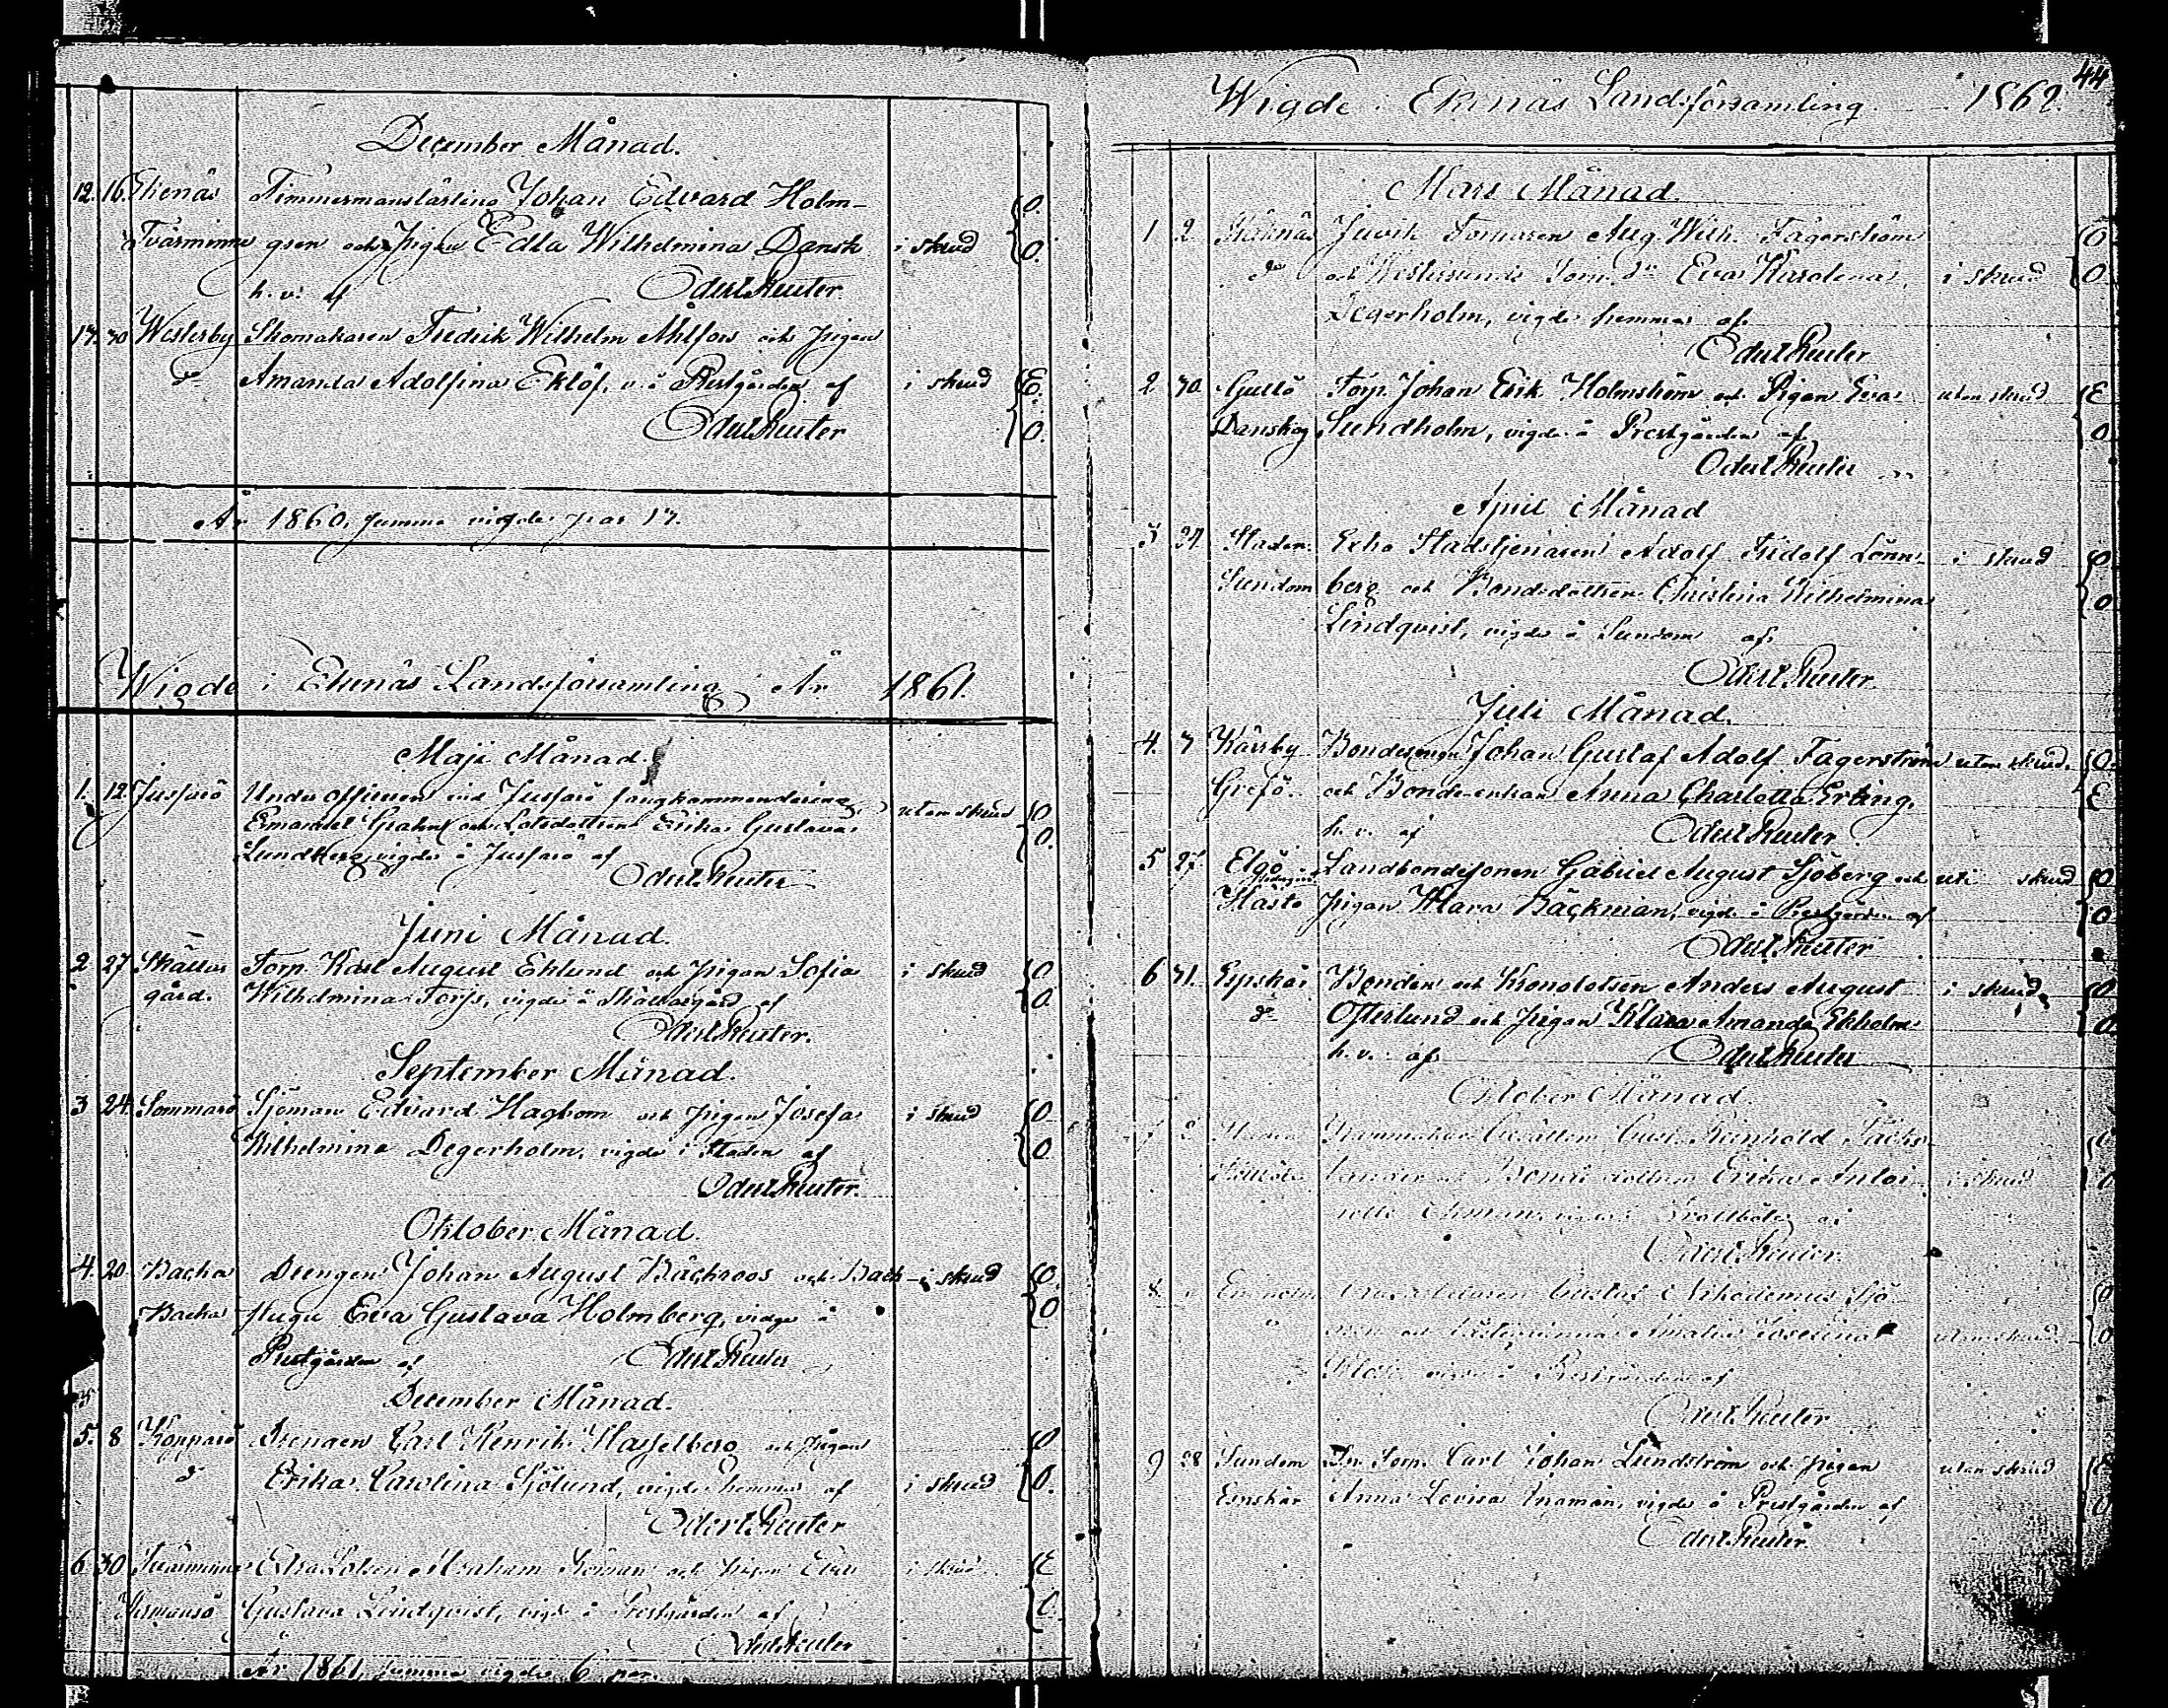 December Månad.
12. 16. Ekenäs Timmermanslärling Johan Edvard Holm-
Tvärminne gren och Pigan Edla Wilhelmina Dansk i skrud O. O.
h. v. af Odert Reuter.
17. 30 Westerby Skomakaren Fredrik Wilhelm Ahlfors och Pigan
do Amanda Adolfina Eklöf, v. å Prestgården af i skrud E. O.
Odert Reuter
År 1860, summa vigde par 17.
Wigde i Ekenäs Landsförsamling År 1861.
Maji Månad.
1. 12. Jussarö Under officeren vid Jussarö fångkommendering utan skrud O
Emanuel Grahn och Lotsdottren Erika Gustava O.
Lundberg, vigde å Jussarö af
Odert Reuter
Juni Månad.
2 27 Skåldö Torp. Karl August Eklund och Pigan Sofia i skrud O
gård. Wilhelmina Torfs, vigde å af O.
Odert Reuter.
September Månad.
3 24. Sommarö Sjöman Edvard Hagbom och Pigan Josefa i skrud O
Wilhelmina Degerholm, vigde i Staden af O.
Odert Reuter.
Oktober Månad.
4. 20. Backa Drengen Johan August Backroos och Back- i skrud O.
Backa stugu Eva Gustava Holmberg, vidge å O
Prestgården af Odert Reuter
December Månad.
5. 8 Kopparö Drengen Carl Henrik Hasselberg och Pigan O
do Erika Carolina Sjölund, vigde hemma af i skrud O.
Odert Reuter
6. 30 Tvärminne Extra Lotsen Abraham Roman och Pigan Eva i skrud E
Hermansö Gustava Lindqvist, vigde å Prestgården af O.
Odert Reuter
År 1861, summa vigde 6 par.
44
Wigde i Ekenäs Landsförsamling 1862.
Mars Månad.
1 2 Skåknäs Juvik Torparen Aug. Wilh. Fagerström O
do och Torp. dr. Eva Karolina i skrud O
Degerholm, vigde hemma af
Odert Reuter
2 30. Gullö Torp. Johan Erik Holmström och Pigan Eva utan skrud E
Danskog Sundholm, vigde å Prestgården af O
Odert Reuter
April Månad
3 27. Staden Extra Stadstjenaren Adolf Fridolf Lönn- i skrud O
Sundom berg och Bondedottren Christina Wilhelmina O
Lindqvist, vigde å Sundom af
Odert Reuter.
Juli Månad.
4. 3 Kårrby Bondesonen Johan Gustaf Adolf Fagerström utan skrud. O.
Grefö. och Bonde-enkan Anna Charlotta Erling, E
h. v. af Odert Reuter.
5 27. Elgö Landbondesonen Gabriel August Sjöberg och uti skrud O
Hästö Pigan Klara Bäckman, vigde å Prestgården af O
Odert Reuter
6 31. Espskär Bonden och Kronolotsen Anders August i skrud, O
do Österlund och Pigan Klara Amanda Ekholm O
h. v. af Odert Reuter
Oktober Månad
7 2 Staden Gust. Reinhold
och Bonde dottren Erika Antoi- i skrud O
nette Öhman, vigde i Trollböle af
Odert Reuter.
8 Gustaf Nikodemus Sjö- O
och Amalia Josefina utan skrud O
vigde å Prestgården af
Odert Reuter
9 28 Sundom Dr. Torp. Carl Johan Lundström och Pigan utan skrud
Espskär Anna Lovisa Ingman, vigde å Prestgården af O
Odert Reuter.